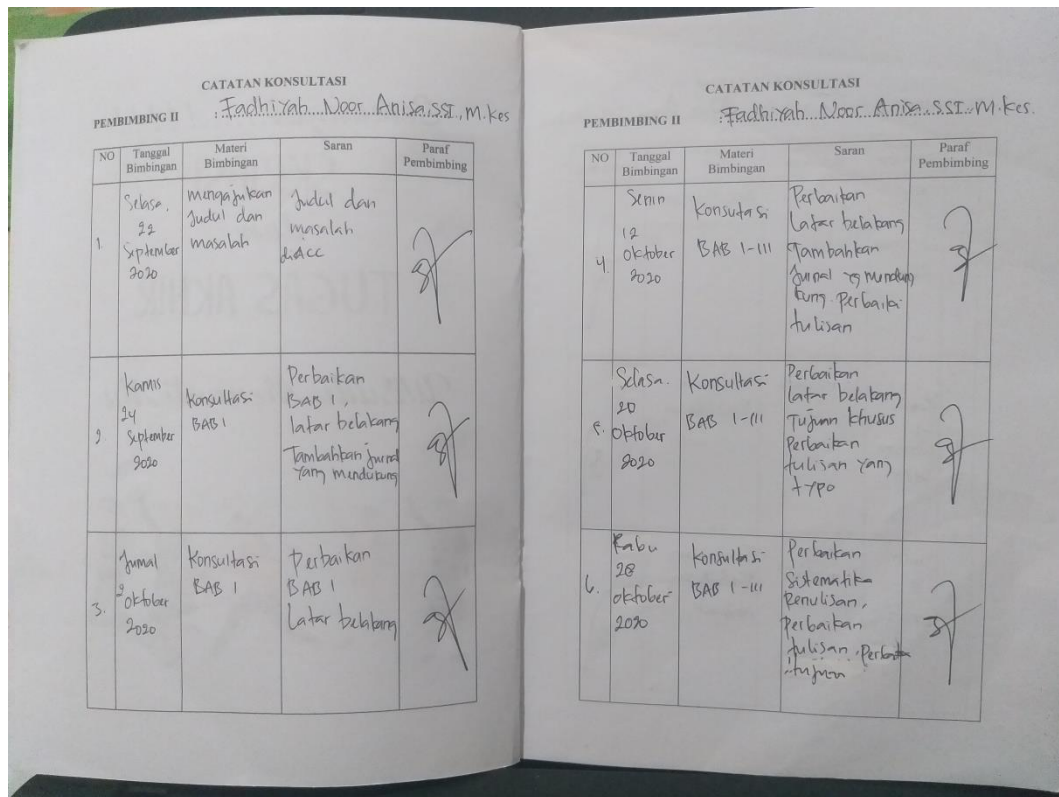 CATATAN KONSULTASI
PEMBIMBING II : Fadhiyah Noor Anisa, SSI., M.Kes
NO Tanggal Bimbingan Materi Bimbingan Saran Paraf Pembimbing
1.
Selasa,
22
September
2020
mengajukan
Judul dan
masalah
Judul dan
masalah
di ACC
2.
Kamis
24
September
2020
Konsultasi
BAB 1
Perbaikan
BAB 1
latar belakang
Tambahkan jurnal
yang mendukung
3.
Jumat
2
Oktober
2020
Konsultasi
BAB 1
Perbaikan
BAB 1
Latar belakang
CATATAN KONSULTASI
PEMBIMBING II : Fadhiyah Noor Anisa, SSI., M.Kes.
NO Tanggal Bimbingan Materi Bimbingan Saran Paraf Pembimbing
4.
Senin
12
Oktober
2020
Konsutasi
BAB 1-III
Perbaikan
Latar belakang
Tambahkan
Jurnal yg mendu
kung. Perbaiki
tulisan
5.
Selasa.
20
Oktober
2020
Konsultasi
BAB 1-III
Perbaikan
latar belakang
Tujuan khusus
Perbaikan
tulisan yang
typo
6.
Rabu
28
Oktober
2020
Konsultasi
BAB 1-III
Perbaikan
Sistematika
Penulisan,
Perbaikan
tulisan, Perbaikan
tujuan